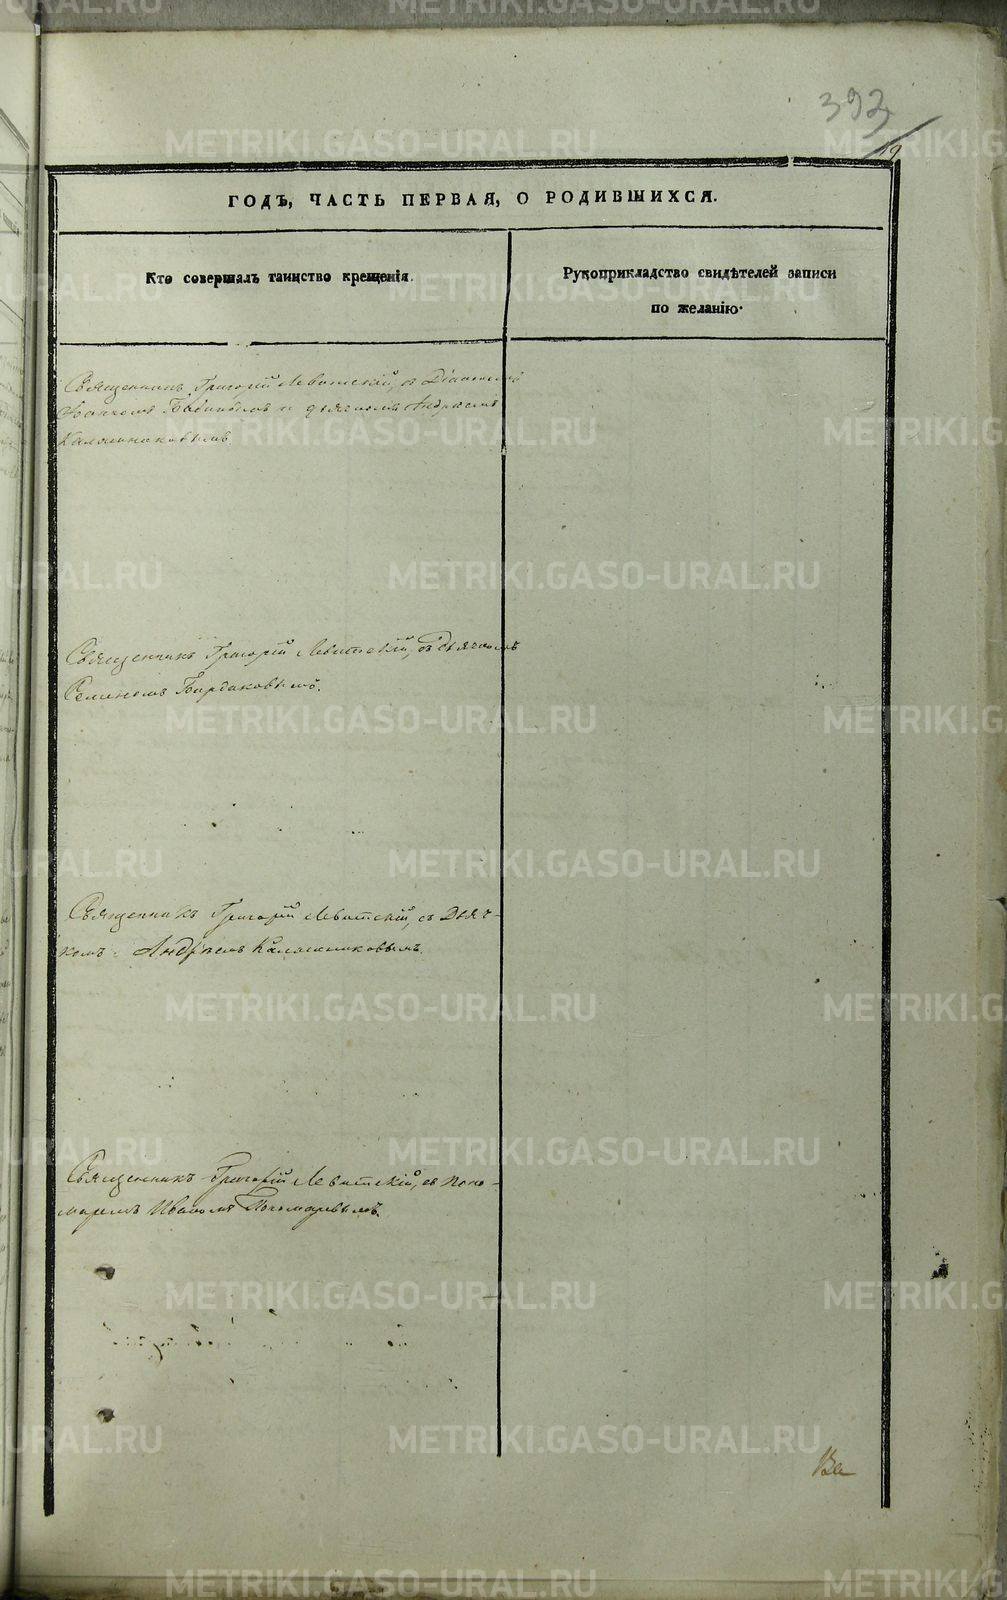 393
19
ГОДЪ, ЧАСТЬ ПЕРВАЯ, О РОДИВШИХСЯ.
Кто совершалъ таинство крещенія.
Рукоприкладство свидѣтелей записи
по желанію.
Священникъ Григорій Левитскій, съ Діакономъ
и дьячкомъ Андреемъ
Калашниковымъ
Священникъ Григорій Левитскій, съ Дьячкомъ
Семеномъ Бурдаковымъ.
Священникъ Григорій Левитскій, съ Дьяч-
комъ Андреемъ Калашниковымъ.
Священникъ Григорій Левитскій, съ Поно-
маремъ Иваномъ Пономаревымъ.
METRIKI.GASO-URAL.RU